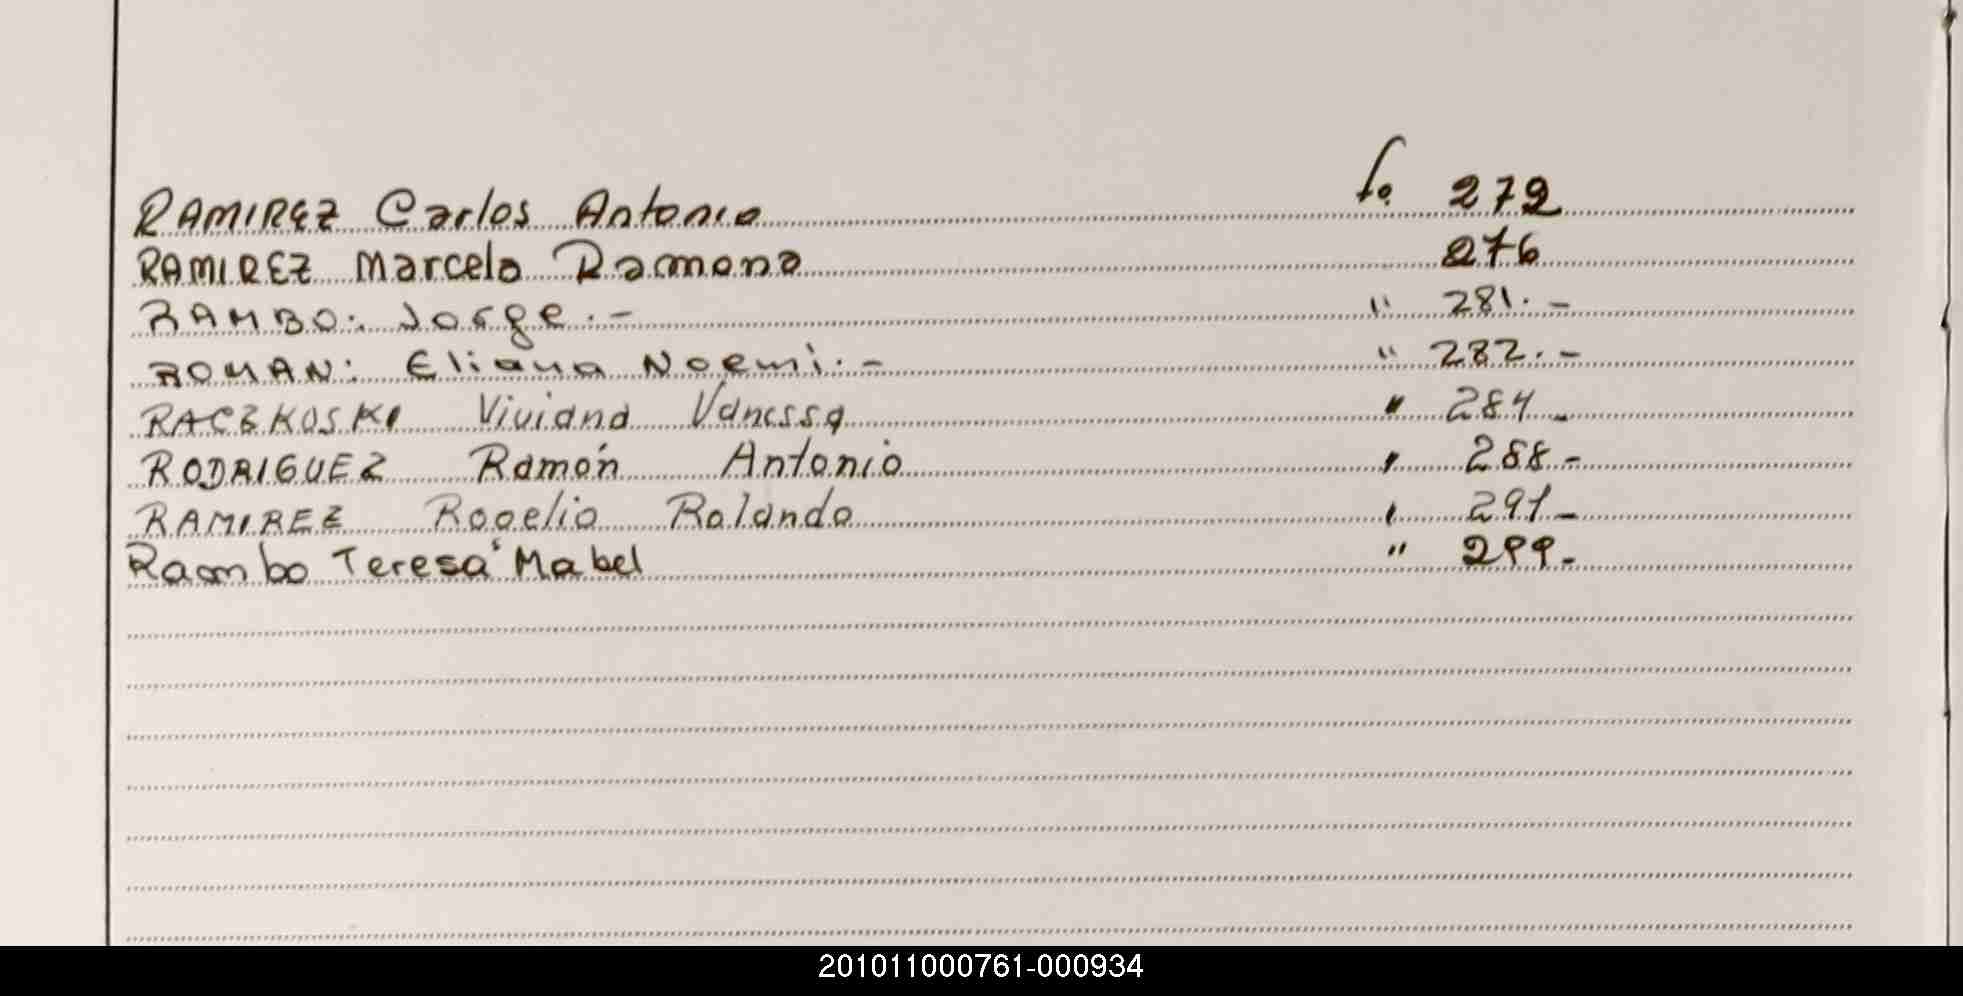 RAMIREZ Carlos Antonio fo. 272
RAMIREZ Marcelo Ramona 276
RAMBO: Jorge.- " 281.-
ROMAN: Eliana Noemi.- " 282.-
RACZKOSKI Viviana Vanessa " 284-
RODRIGUEZ Ramón Antonio " 288-
RAMIREZ Rogelio Rolando " 291-
Rambo Teresa Mabel " 299-
201011000761-000934